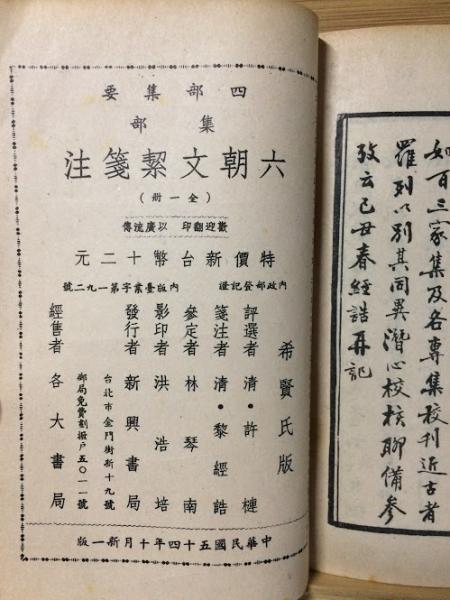 如百三家集及各專集校刊近古者
羅列以別其同異潛心校核聊備參
攷云己丑春經誥再記
四部集要
集部
六朝文絜箋注
(全一冊)
歡迎翻印 以廣流傳
特價新台幣十二元
內政部發記證 內版臺業字第一九二號
希賢氏版
評選者 清•許槤
箋注者 清•黎經誥
參定者 林琴南
影印者 洪浩培
發行者 新興書局
台北市金門街新十九號
郵局免費劃撥戶五〇一一號
經售者 各大書局
中華民國五十四年十月新一版